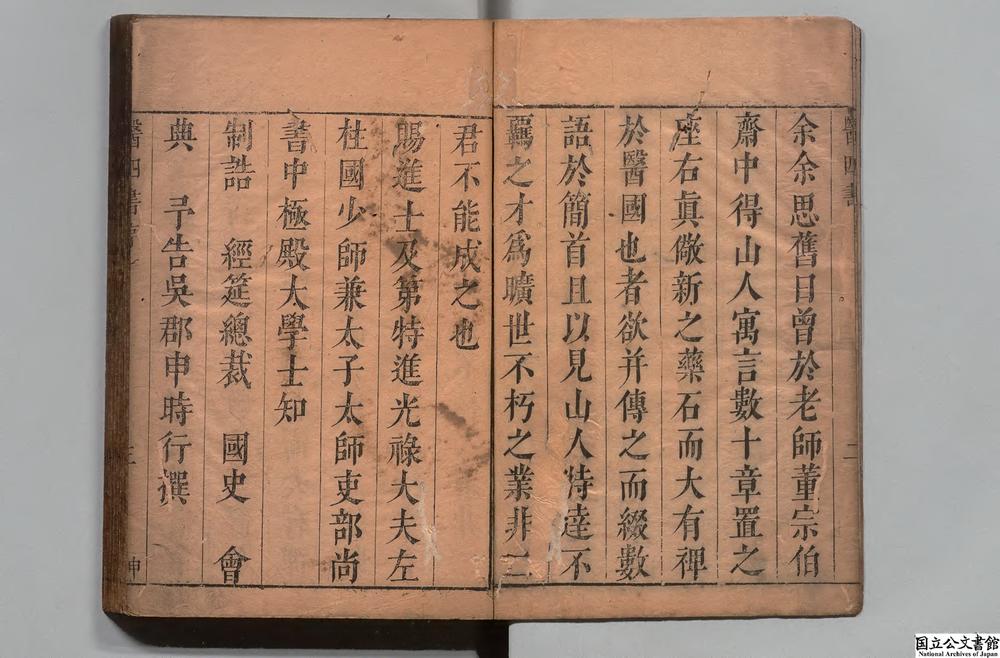 余余思舊日曾於老師董宗伯
齋中得山人寓言數十章置之
座右眞儆新之藥石而大有裨
於醫國也者欲并傳之而綴數
語於簡首且以見山人特達不
羈之才爲曠世不朽之業非二
君不能成之也
賜進士及第特進光祿大夫左
柱國少師兼太子太師吏部尚
書中極殿大學士知
制誥 經筵總裁 國史 會
典 予告吳郡申時行撰
醫四書
二
醫四書序
三
申
国立公文書館
National Archives of Japan